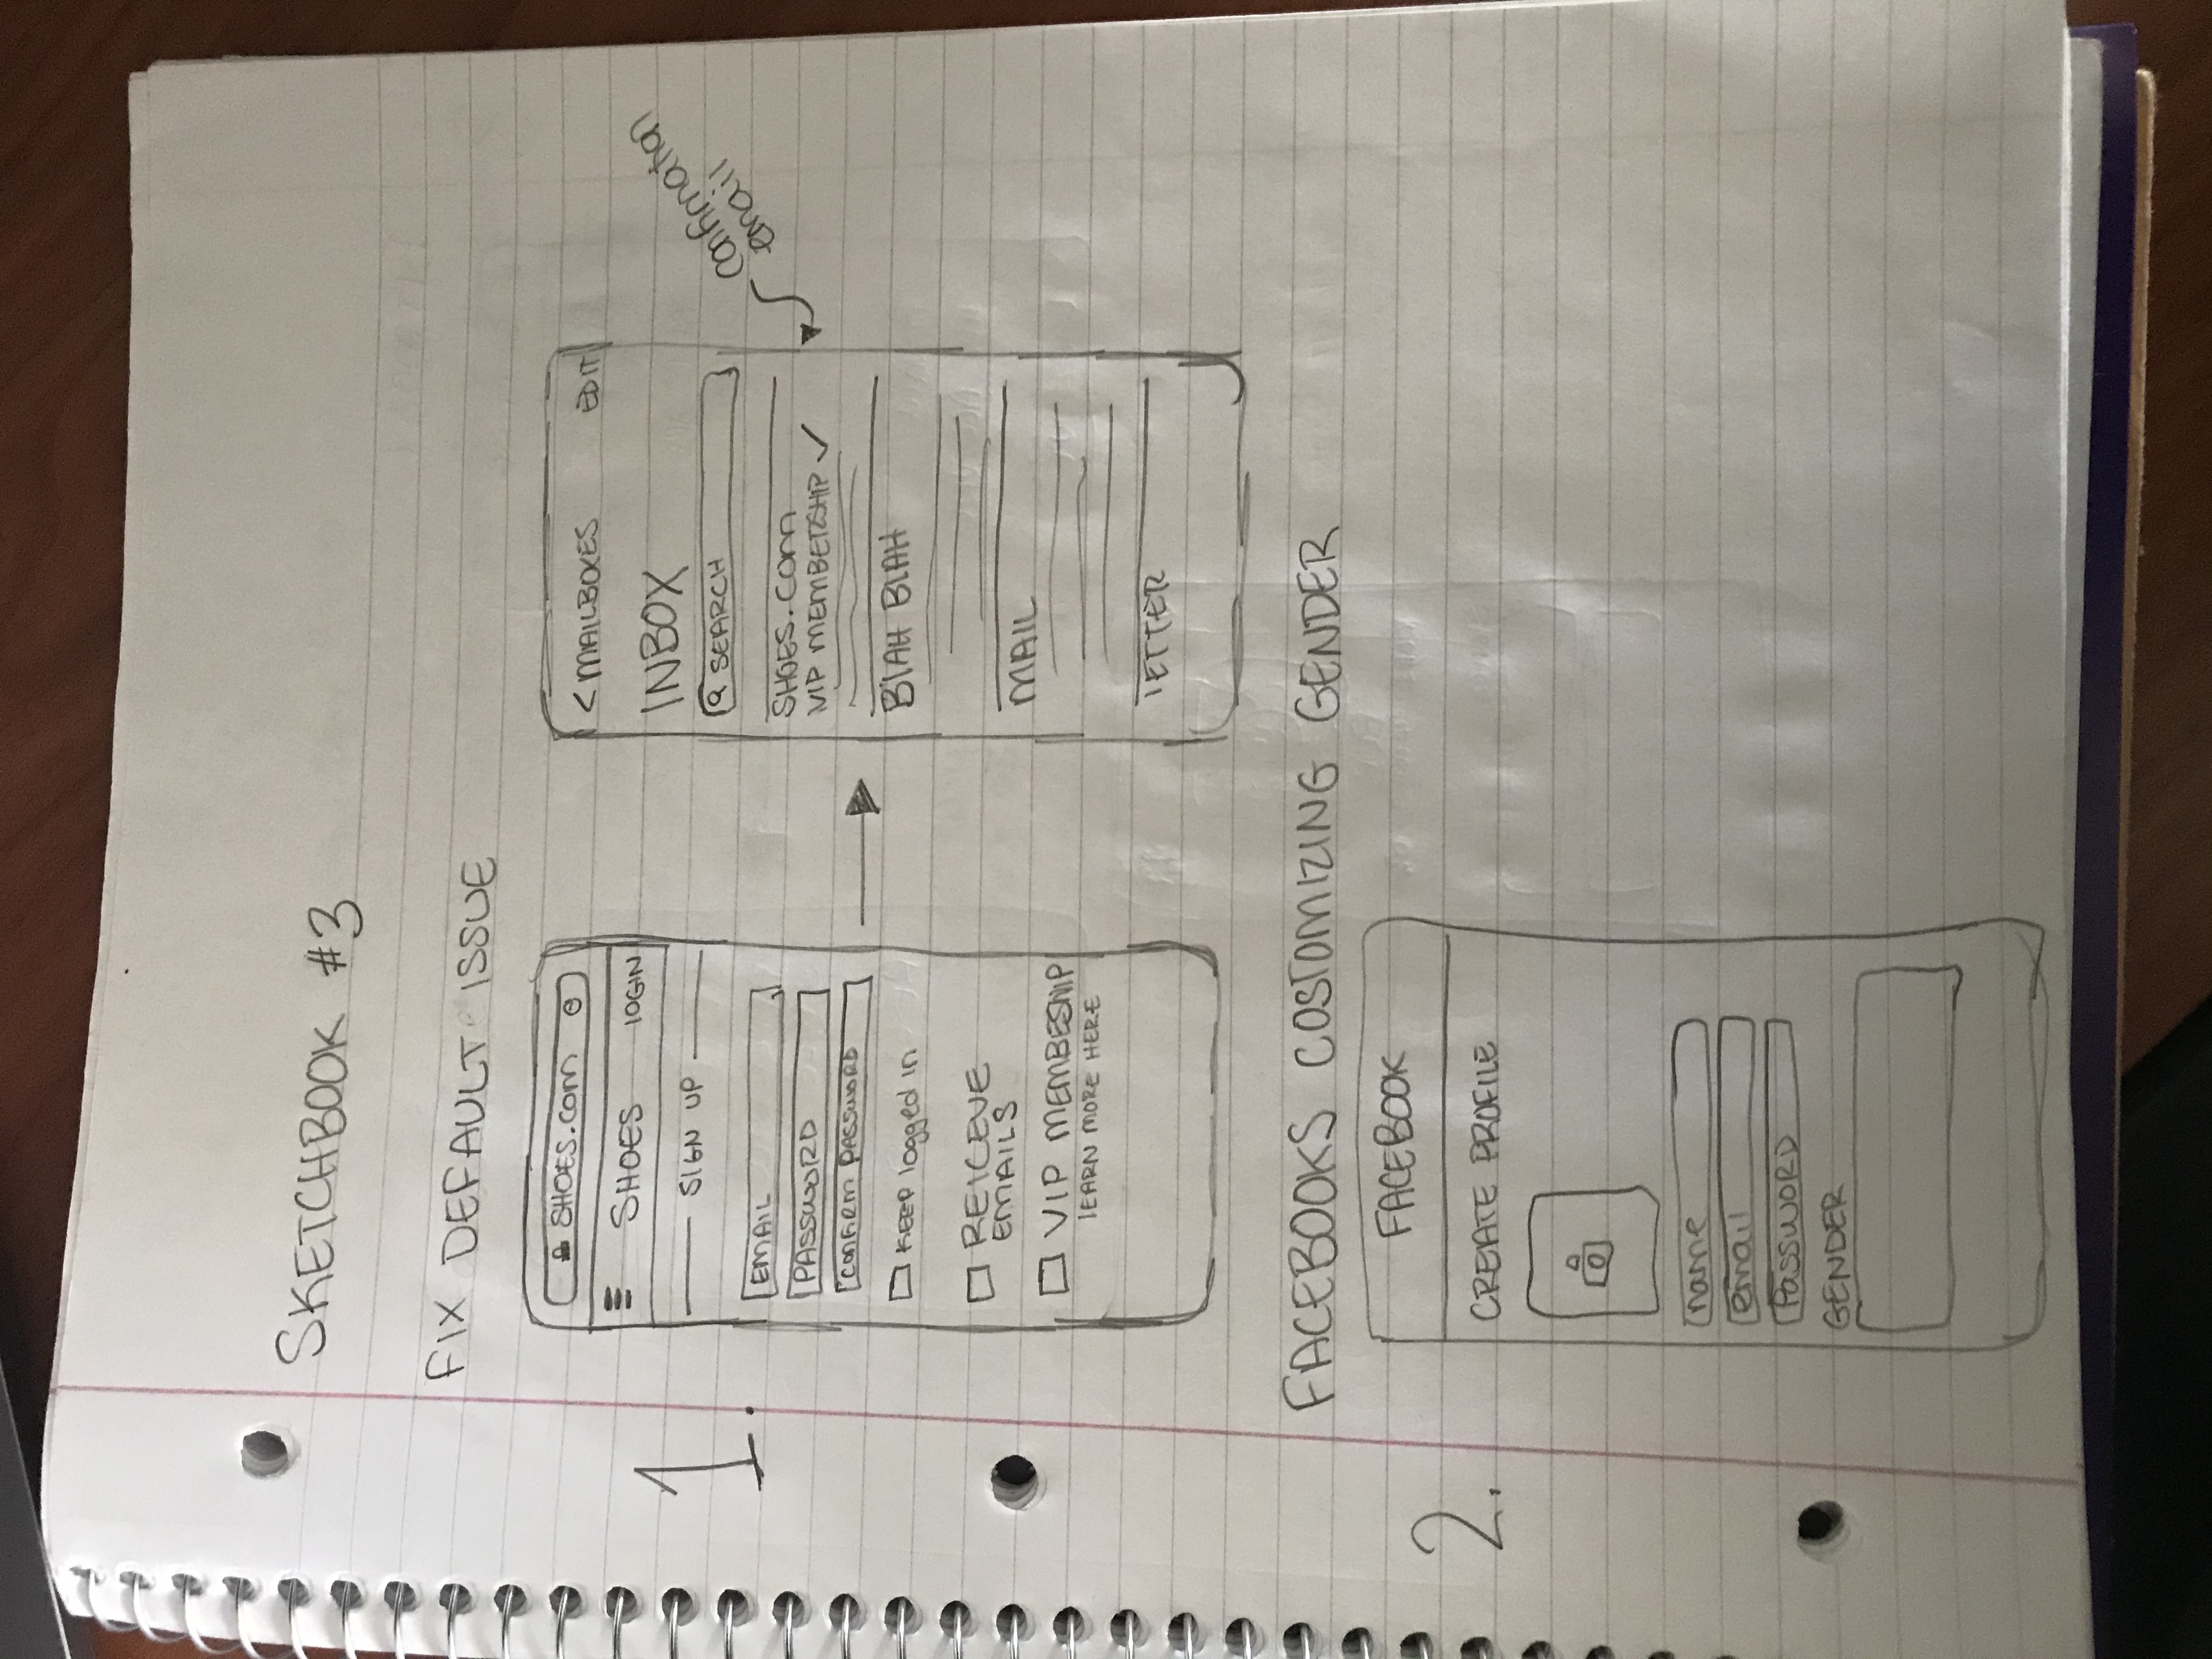 SKETCHBOOK #3
FIX DEFAULT ISSUE
1.
SHOES.com
SHOES LOGIN
SIGN UP
EMAIL
PASSWORD
CONFIRM PASSWORD
KEEP logged in
REICEVE
EMAILS
VIP MEMBESHIP
LEARN MORE HERE
< MAILBOXES EDIT
INBOX
SEARCH
SHOES.com
VIP MEMBERSHIP ✓
BLAH BLAH
MAIL
LETTER
confirmation
email
FACEBOOKS COSTOMIZING GENDER
2.
FACEBOOK
CREATE PROFILE
name
email
PASSWORD
GENDER